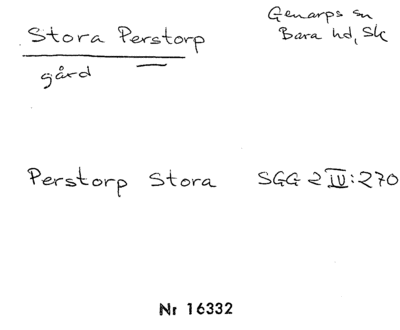 Stora Perstorp
Genarps sn
Bara hd, Sk
gård
Perstorp Stora SGG 2 IV:270
Nr 16332